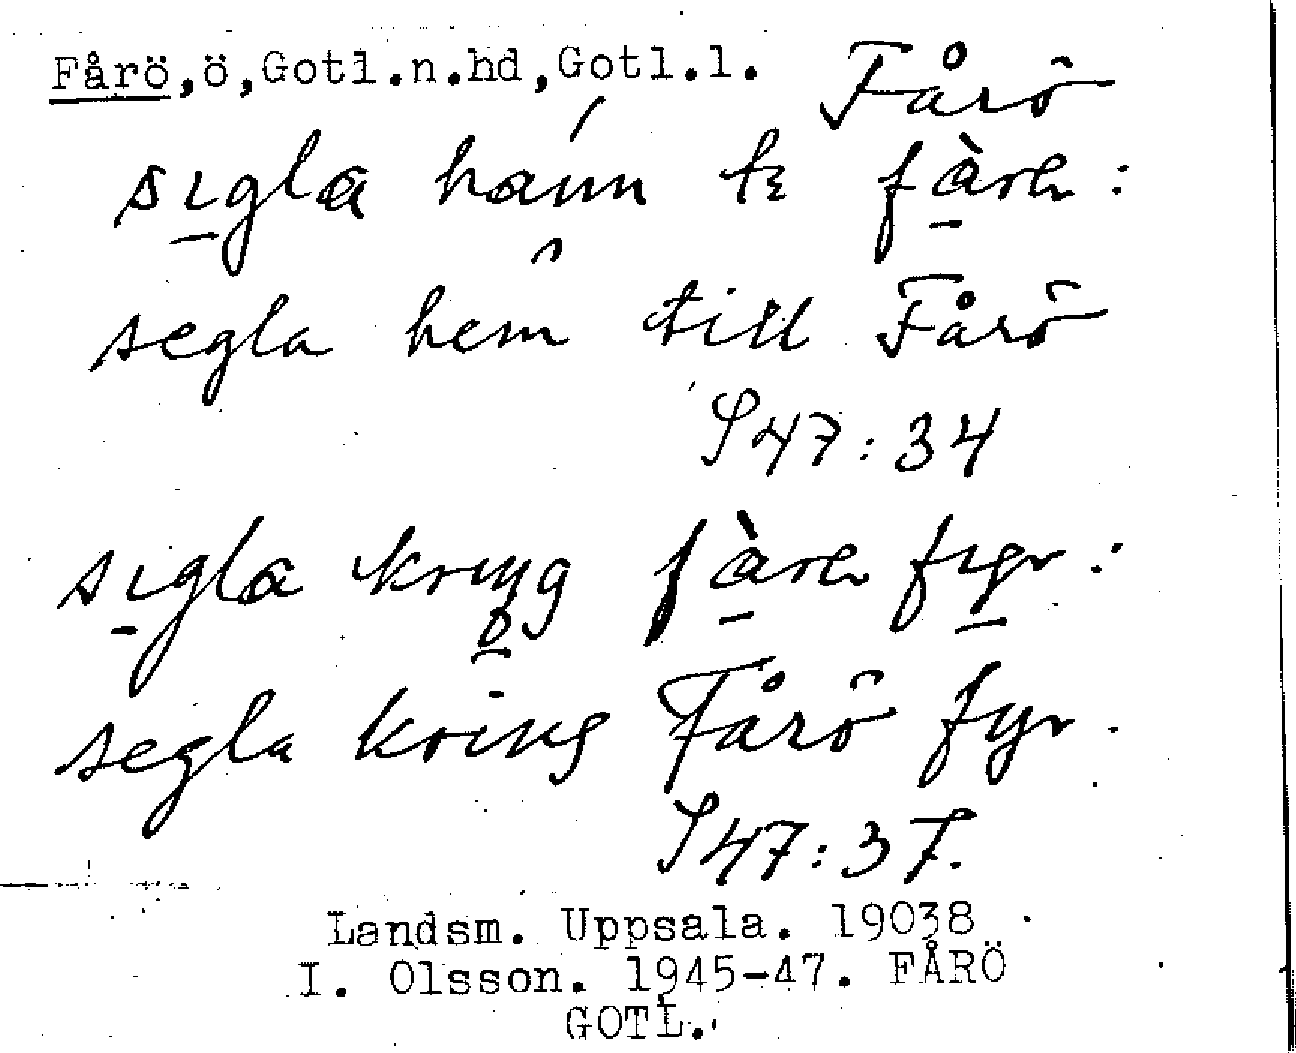 Fårö,ö,Gotl.n.hd,Gotl.l. Fårö
sıgla háım tɛ fàrɶ :
segla hem till Fårö
S 47 : 34
sıgla krıŋg fàrɶ fyr :
segla kring Fårö fyr .
S 47 : 37.
Landsm. Uppsala. 19038
I. Olsson. 1945-47. FÅRÖ
GOTL.